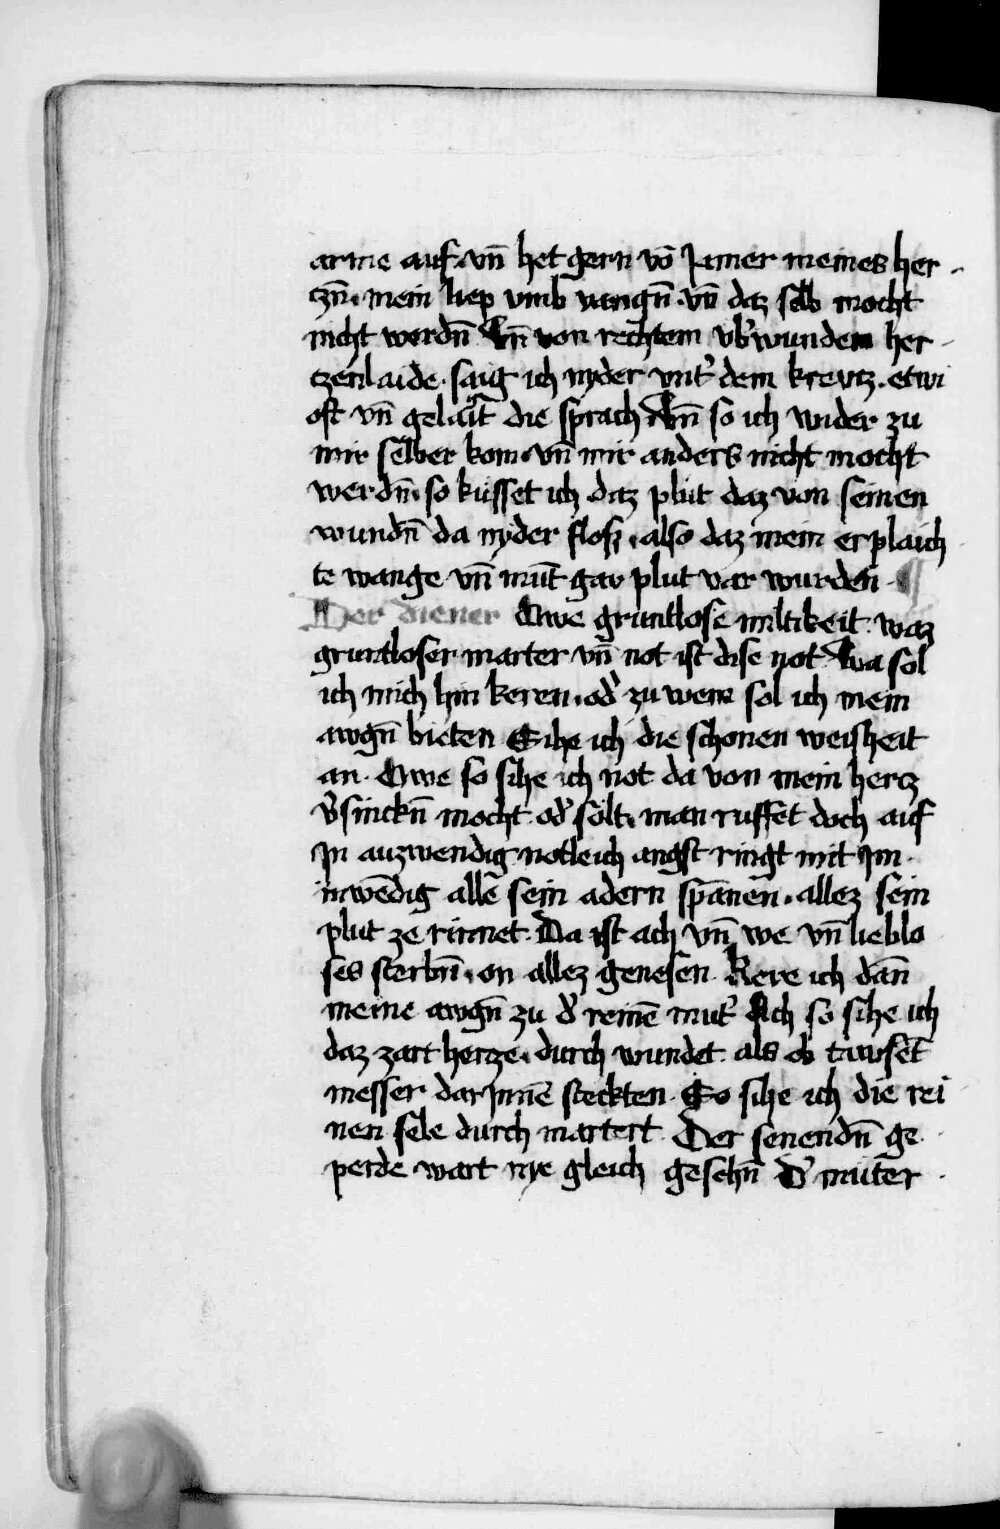 arme auf · vn̄ het gern vō Jamer meines her -
czn̄ · mein liep vmb vangn̄ · vn̄ daz selb mocht
nicht werdn̄ Vn̄ von rechtem vb̾wundem her -
czenlaide · saig ich nyder vnt̾ dem krevtz · etwi
oft vn̄ gelag die sprach Vn̄ so ich wider zu
mir selber kom · vn̄ mir anders nicht mocht
werdn̄ · so kusset ich daz plut daz von seinen
wundn̄ da nyder flosz · also daz mein erplaich
te wange vn̄ mūt gar plut var wurden · ¶
Der diener Owe gruntlose miltikeit · waz
gruntloser marter vn̄ not ist dise not Wa sol
ich mich hin keren · od̾ zu wem sol ich mein
awgn̄ bieten Sihe ich die schonen weisheit
an · Owe so sihe ich not da von mein hercz
v̾sinckn̄ mocht od̾ solt · man ruffet doch auf
Jn auzwendig notleich angst ringt mit Jm ·
inwēdig alle sein adern spānen · allez sein
plut ze rinnet · Da ist ach vn̄ we vn̄ lieblo
ses sterbn̄ · on allez genesen · Kere ich dān
meine awgn̄ zu d̾ reinē mut̾ Ach so sihe ich
daz zart hercze · durch wundet als ob tawsēt
messer darJnnē steckten · So sihe ich die rei
nen sele durch martert · Der senendn̄ ge
perde wart nye gleich geschn̄ D̾ muter ·